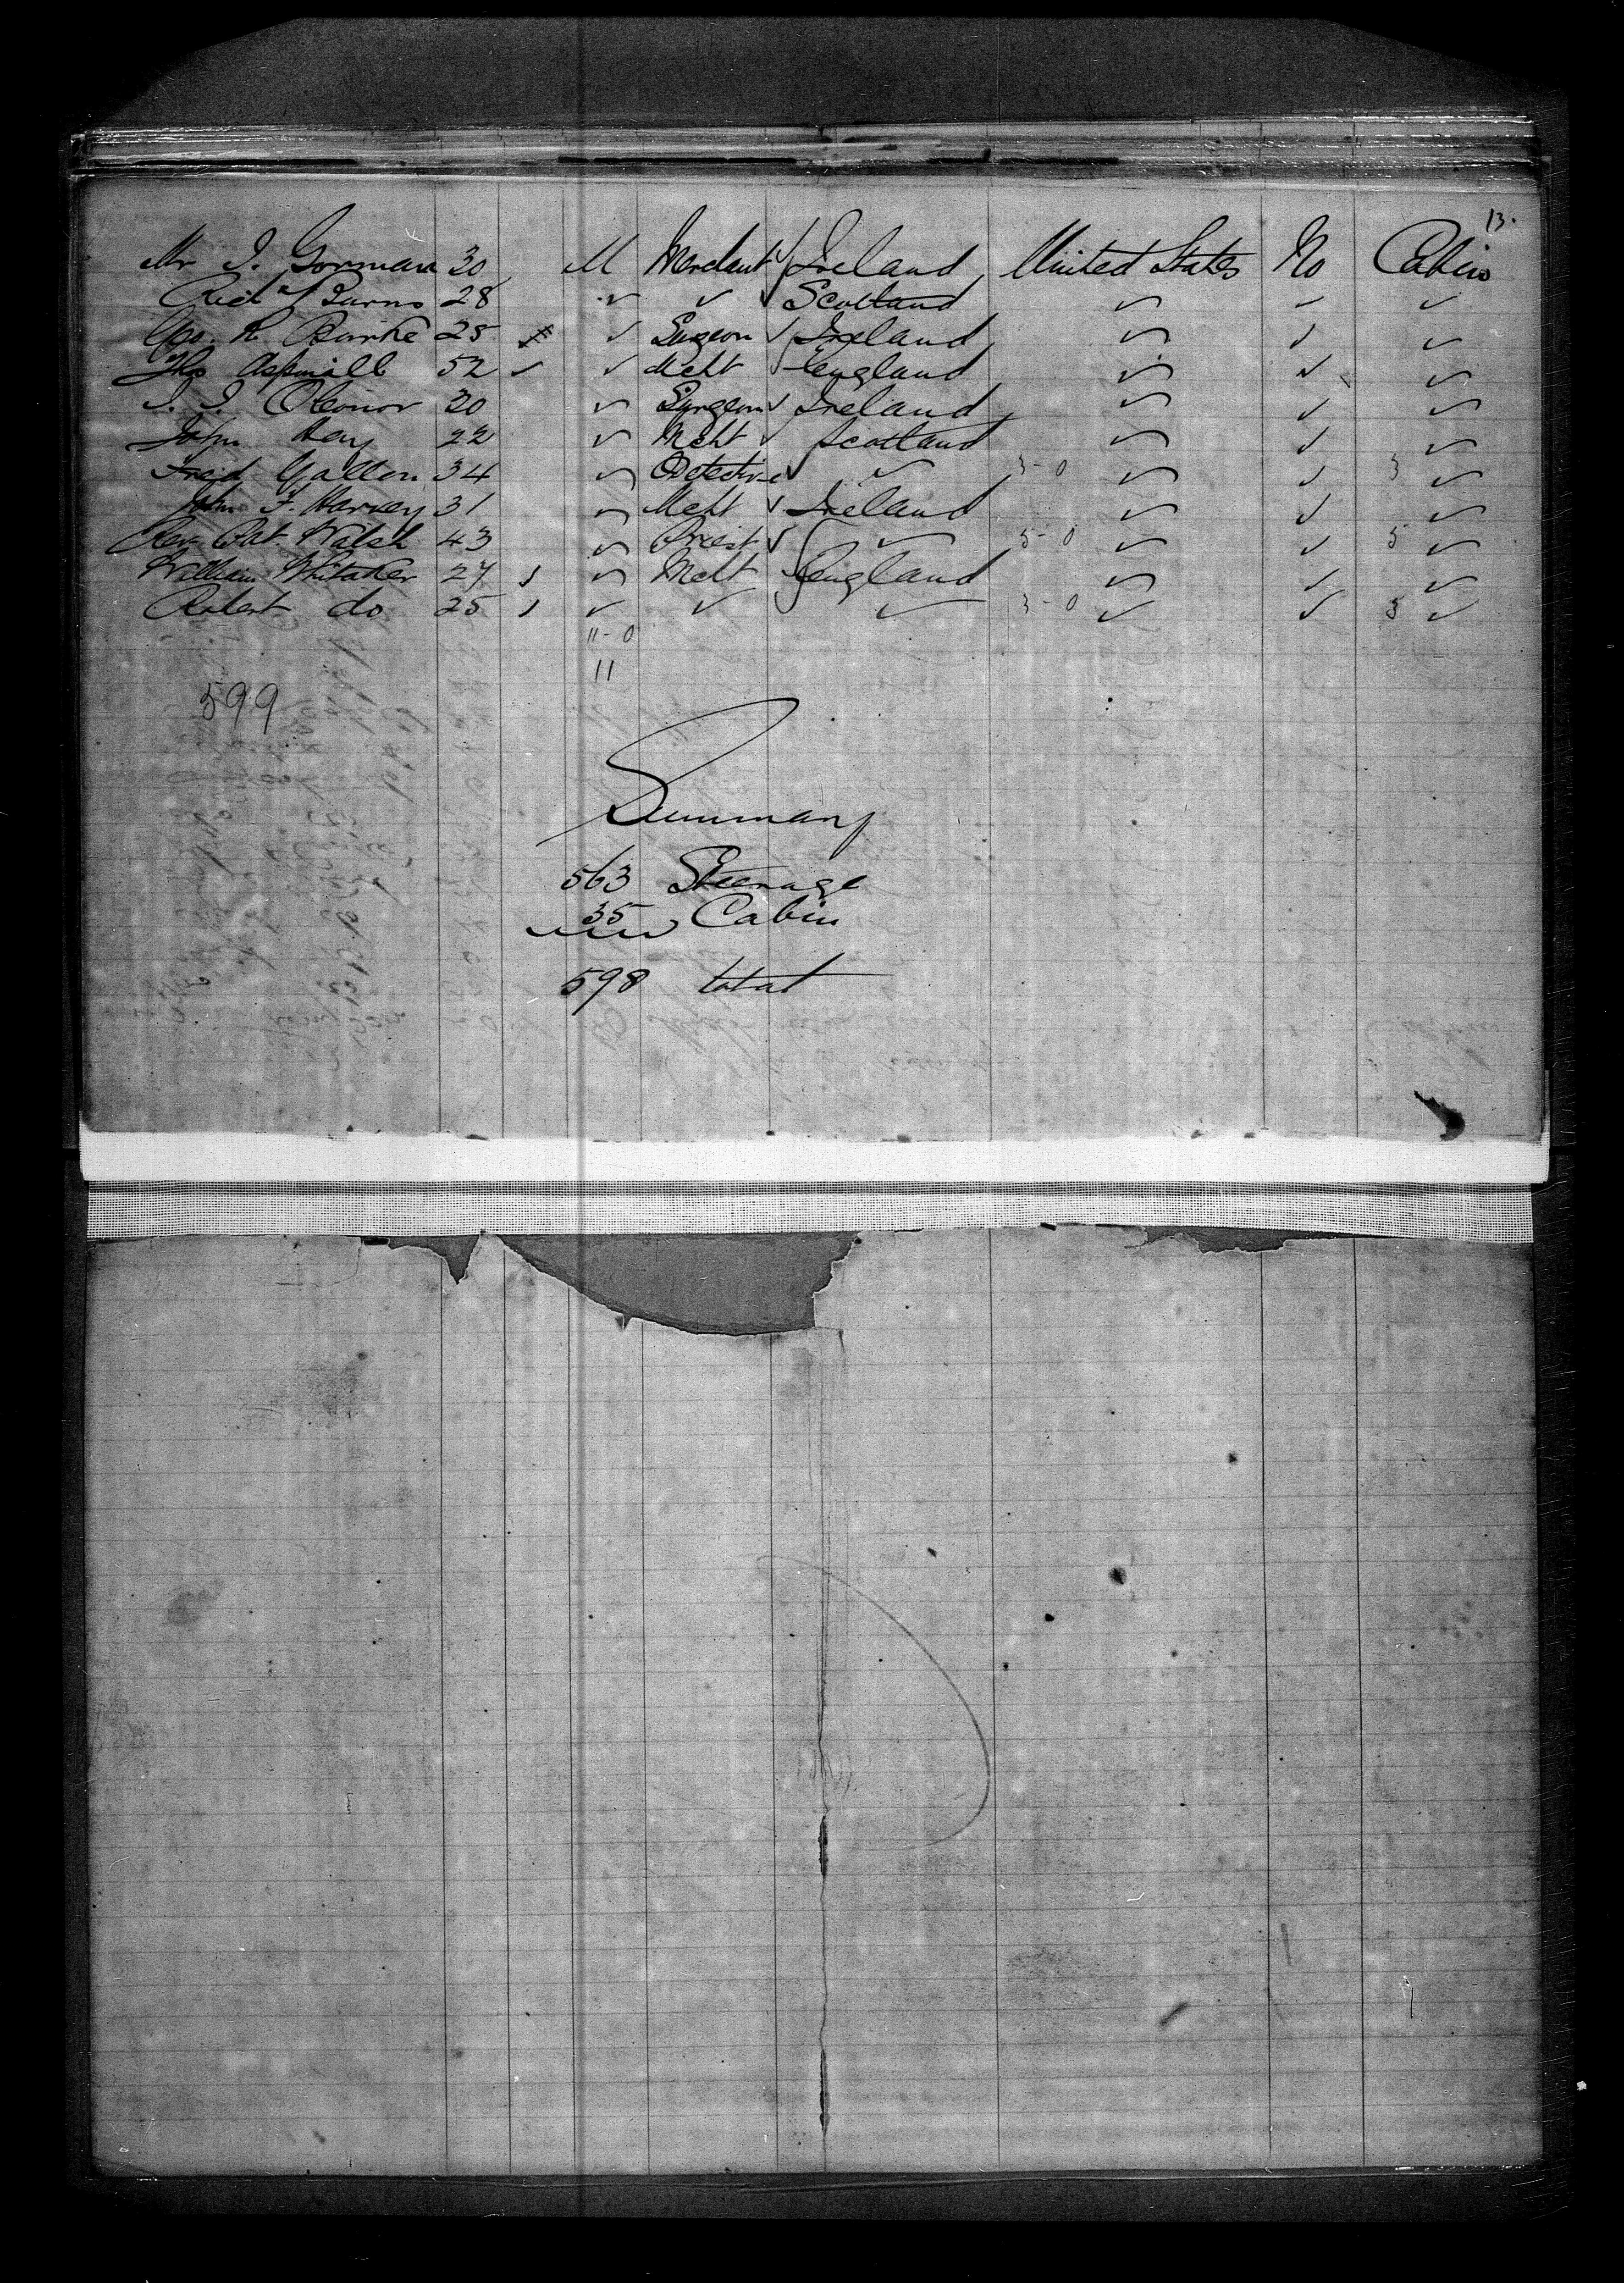 13.
Mr J. Gorman 30 M Merchant Ireland United States No Cabin
Richd Burns 28 ✓ ✓ Scotland ✓ ✓ ✓
Geo. R Burke 25 ✓ Surgeon Ireland ✓ ✓ ✓
Ths Aspinall 52 ✓ ✓ Mcht England ✓ ✓ ✓
J. J. OConor 30 ✓ Surgeon Ireland ✓ ✓ ✓
John Hay 22 ✓ Mcht Scotland ✓ ✓ ✓
Fred Gallon 34 ✓ Detective ✓ 3-0 ✓ ✓ 3 ✓
John F. Harvey 31 ✓ Mcht Ireland ✓ ✓ ✓
Rev. Pat. Walsh 43 ✓ Priest ✓ 5-0 ✓ ✓ 5 ✓
William Whitaker 27 ✓ Mcht England ✓ ✓ ✓
Robert do 25 ✓ ✓ ✓ 3-0 ✓ ✓ 3 ✓
11-0
11
599
Summary
563 Steerage
35 Cabin
598 total